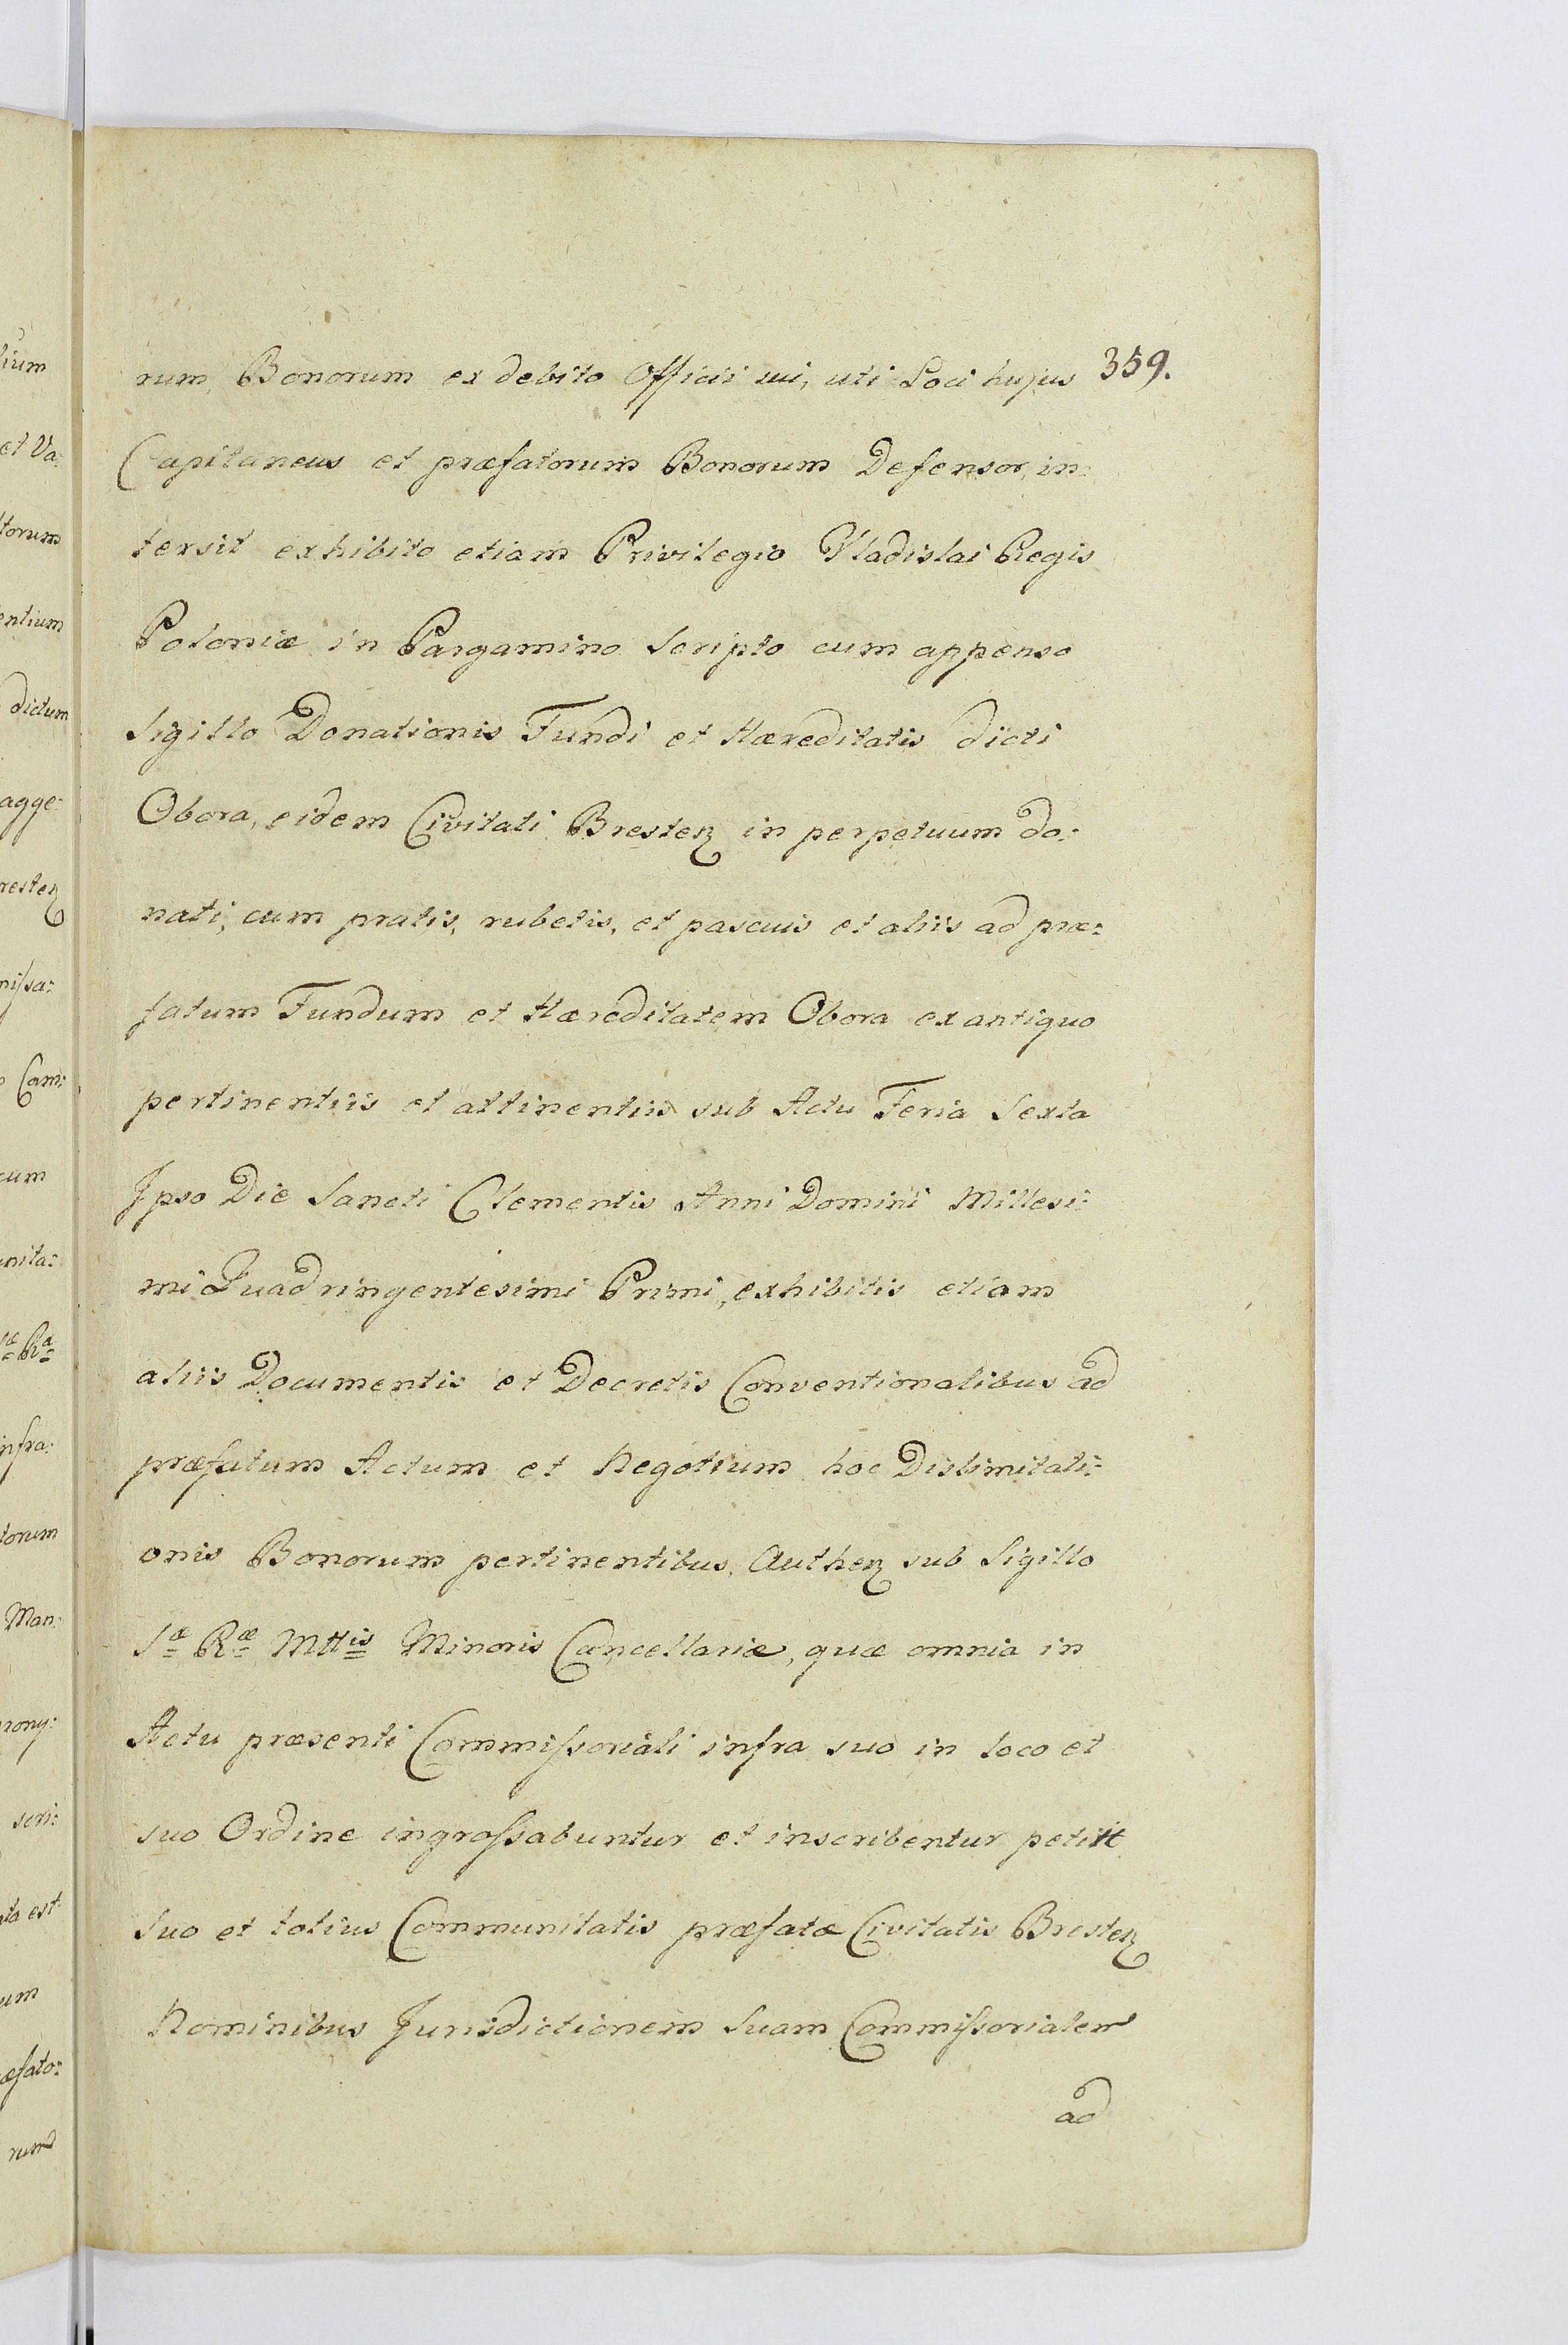 rum, Bonorum ex debito Officii sui, uti Loci hujus 359.
Capitaneus et præfatorum Bonorum Defensor, in:
tersit exhibito etiam Privilegio Vladislai Regis
Poloniæ in Pargamino Scripto cum appenso
Sigillo Donationis Fundi et Hæreditatis dicti
Obora, eidem Civitati Bresteȝ in perpetuum do:
nati, cum pratis, rubetis, et pascuis et aliis ad præ:
fatum Fundum et Hæreditatem Obora ex antiquo
pertinentiis et attinentiis sub Actu Feria Sexta
Ipso Die Sancti Clementis Anni Domini Millesi:
mi Quadringentesimi Primi, exhibitis etiam
aliis Documentis et Decretis Conventionalibus ad
præfatum Actum et Negotium hoc Dislimitati:
onis Bonorum pertinentibus, Autheȝ sub Sigillo
Sæ Ræ Mttis Minoris Cancellariæ, quæ omnia in
Actu præsenti Commiſsoriali infra suo in loco et
suo Ordine ingroſsabuntur et inscribentur petiit
Suo et totius Communitatis præfatæ Civitatis Bresteȝ
Nominibus Jurisdictionem Suam Commiſsorialem
ad